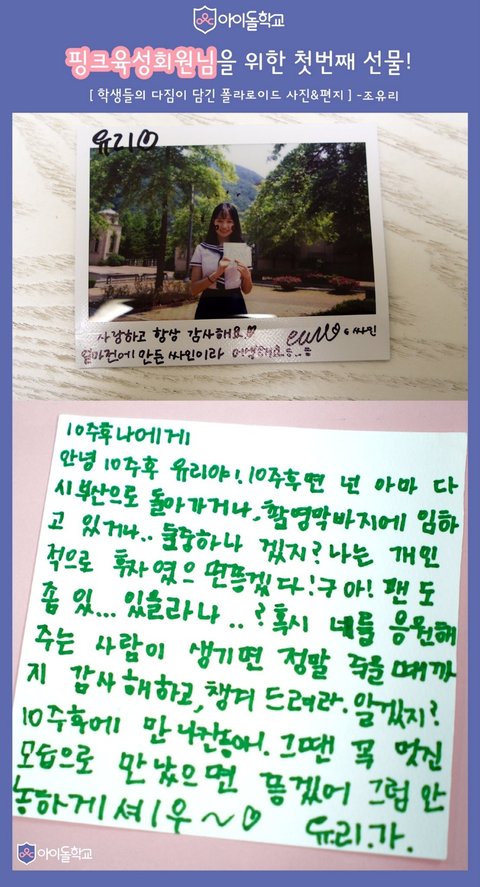 아이돌학교
핑크육성회원님을 위한 첫번째 선물!
[ 학생들의 다짐이 담긴 폴라로이드 사진&편지 ] -조유리
유리♡
사랑하고 항상 감사해요♡
얼마전에 만든 싸인이라 어색해요
싸인
10주후 나에게
안녕 10주후 유리야! 10주후면 넌 아마 다
시 부산으로 돌아가거나, 촬영막바지에 임하
고 있거나.. 둘중하나 겠지? 나는 개인
적으로 후자였으면 뜽겠다! 구아! 팬도
좀 있... 있을라나..? 혹시 너를 응원해
주는 사람이 생기면 정말 죽을때까
지 감사해하고, 챙겨 드려라. 알겠지?
10주후에 만나잔농아. 그땐 꼭 멋진
모습으로 만났으면 뜽겠어 그럼 안
농하게셔1우~♡ 유리.가.
아이돌학교